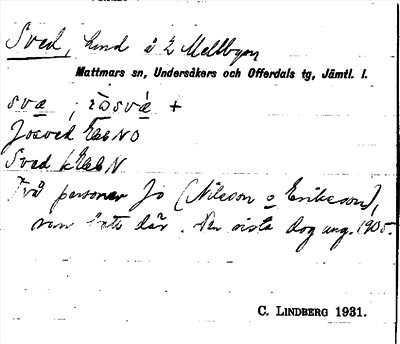 Sved, hmd å 2 Mellbyn
Mattmars sn, Undersåkers och Offerdals tg, Jämtl. l.
sva ; +
Josved EEN o
Sved k EEN
Två personer Jo (Nilsson o Eriksson),
som bott där. Den sista dog ung. 1905.
C. LINDBERG 1931.